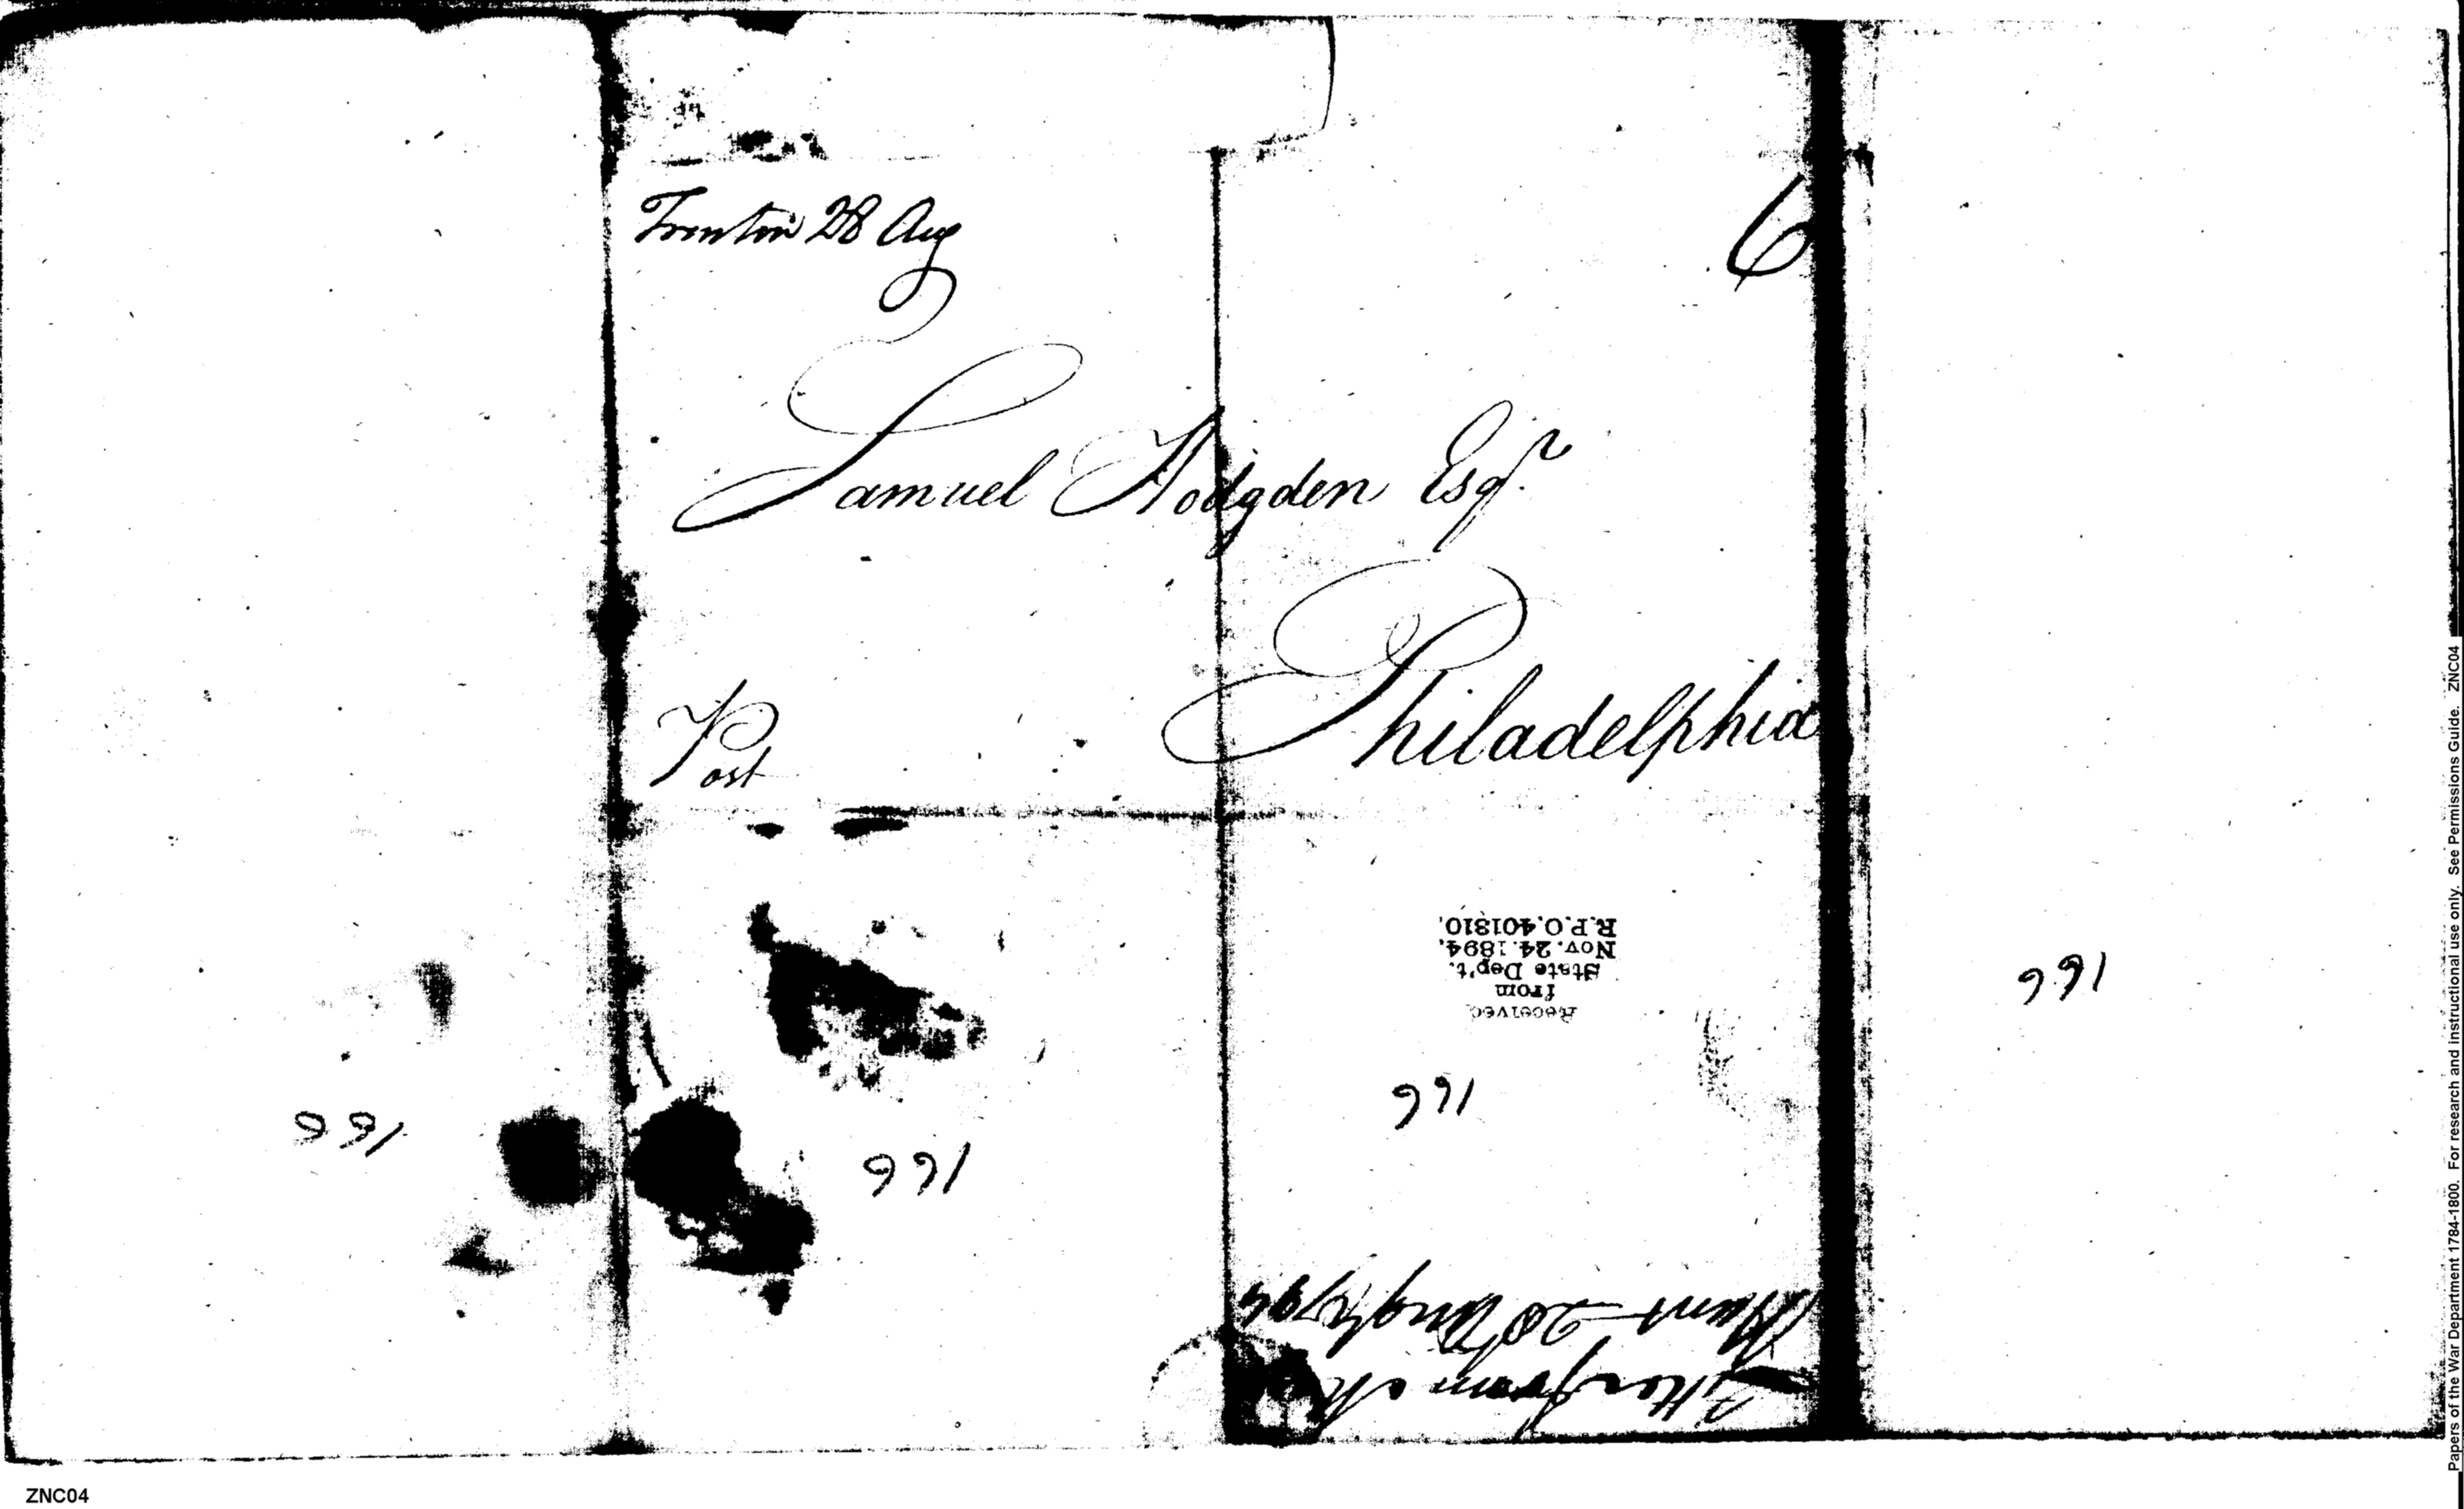 Trenton 28 Aug
6
Samuel Hodgden Esqr.
Philadelphia
Post
Received
from
State Dep't.
Nov. 24. 1894,
R.P.O. 401310.
166
166
166
166
Letter from
Hunt 28 Augt 1794
Papers of the War Department 1784-1800. For research and instructional use only. See Permissions Guide. ZNC04
ZNC04